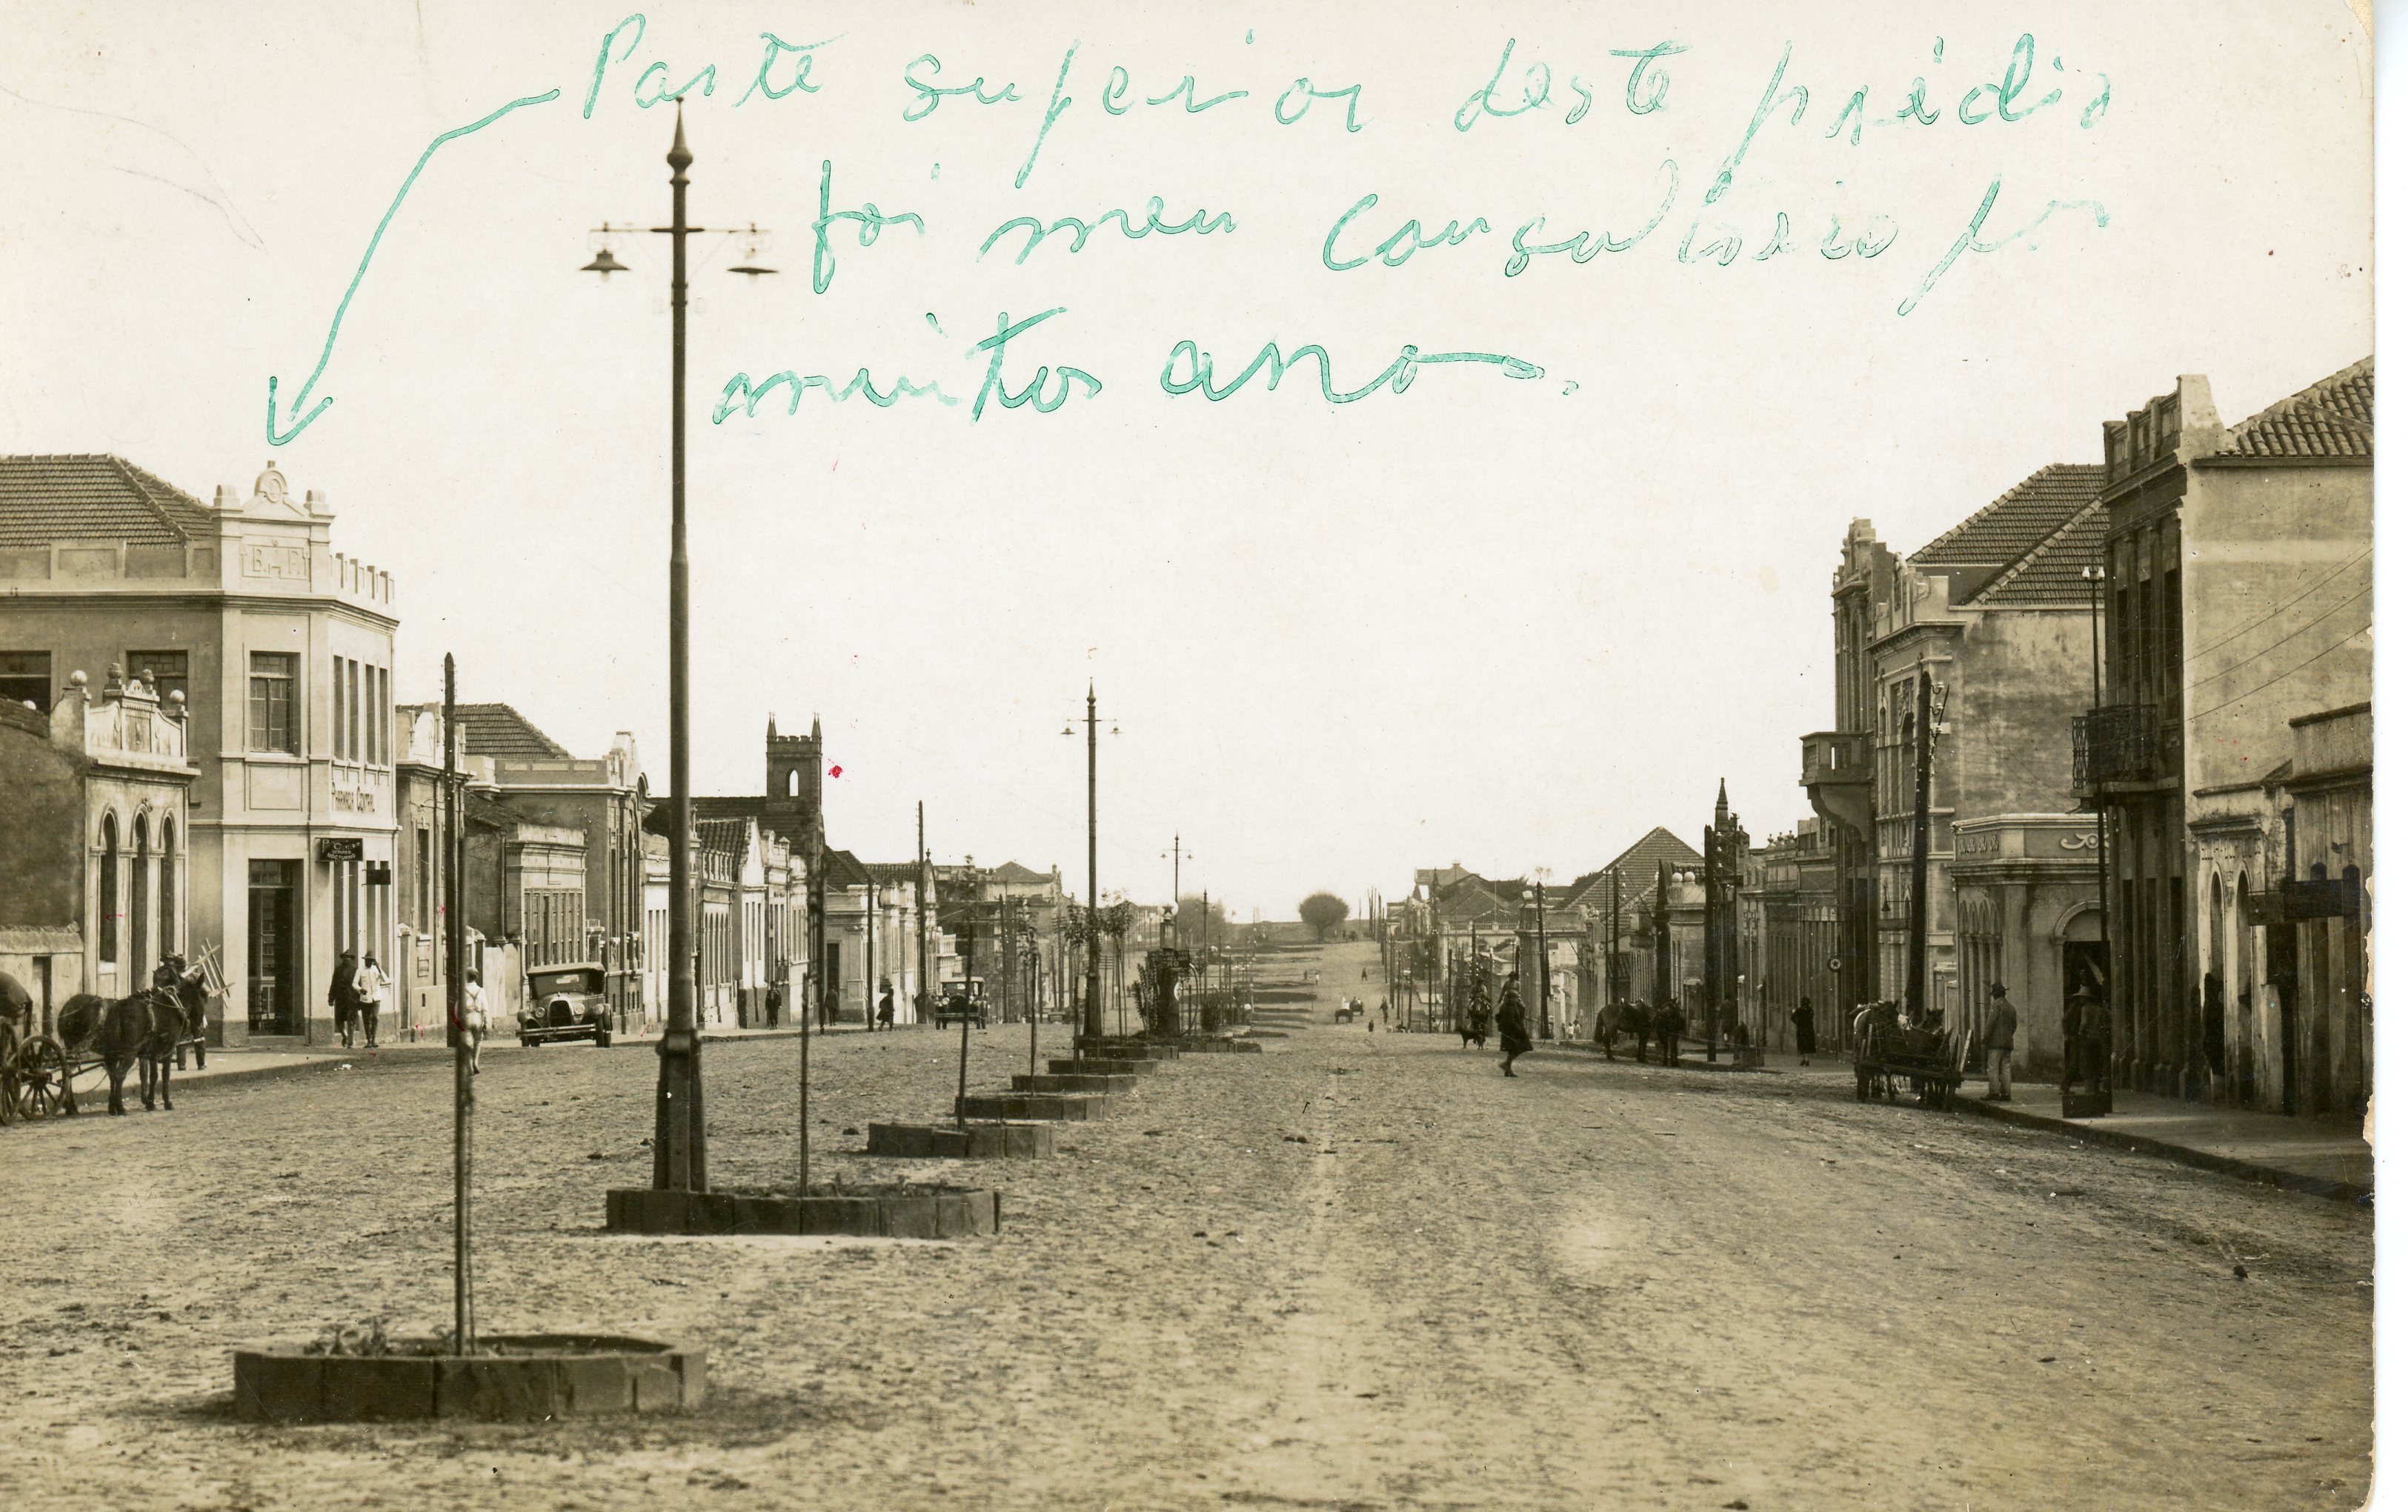 Parte superior deste prédio
foi meu consultorio por
muitos anos.
B. F.
PHARMACIA CENTRAL
NOCTURNO